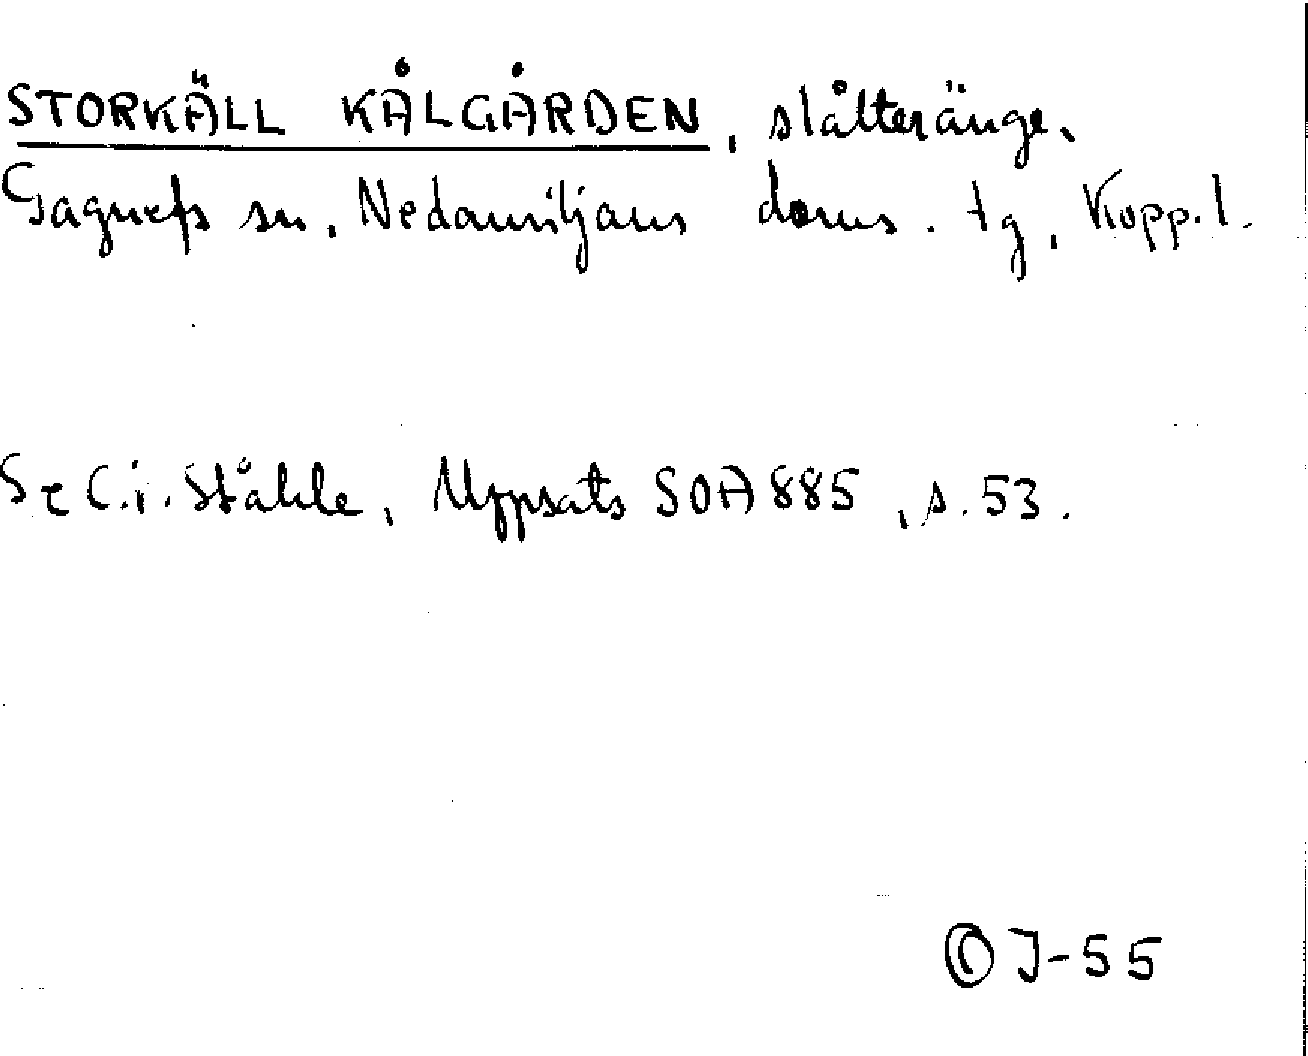 STORKÄLL KÅLGÅRDEN, slåtteränge,
Gagnefs sn, Nedansiljans doms. tg, Kopp. l.
Se C.i. Ståhle, Uppsats SOA 885, s. 53.
OJ-55